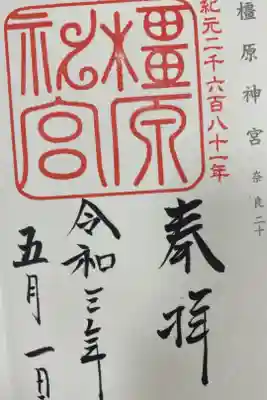 橿原神宮 奈良二十
紀元二千六百八十一年
橿原
神宮
奉拝
令和三年
五月一日